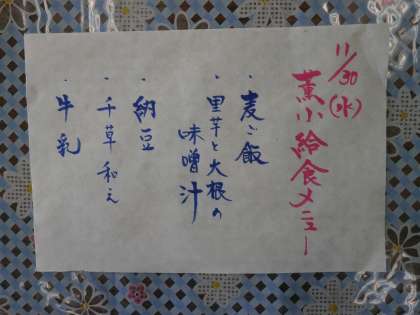 11/30(水)
薫小給食メニュー
・麦ご飯
・里芋と大根の
味噌汁
・納豆
・千草和え
・牛乳